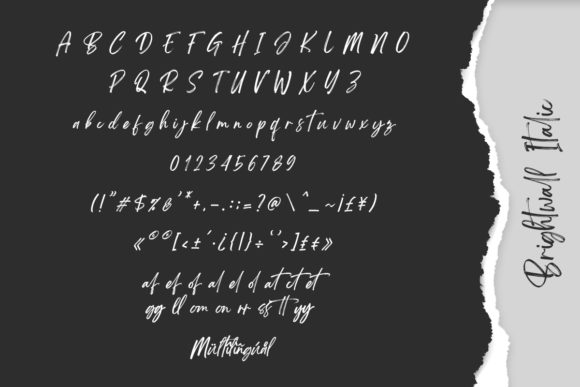 A B C D E F G H I J K L M N O
P Q R S T U V W X Y Z
a b c d e f g h i j k l m n o p q r s t u v w x y z
0 1 2 3 4 5 6 7 8 9
(!"#$%&'*+,-.:;=?@\^_~¡£¥)
«©®[<±´·¿{|}÷‘’>]£€»
af ef of al el d at ct et
gg ll om on rr ss tt yy
Mültîlíñgúål
Brightwall Italic